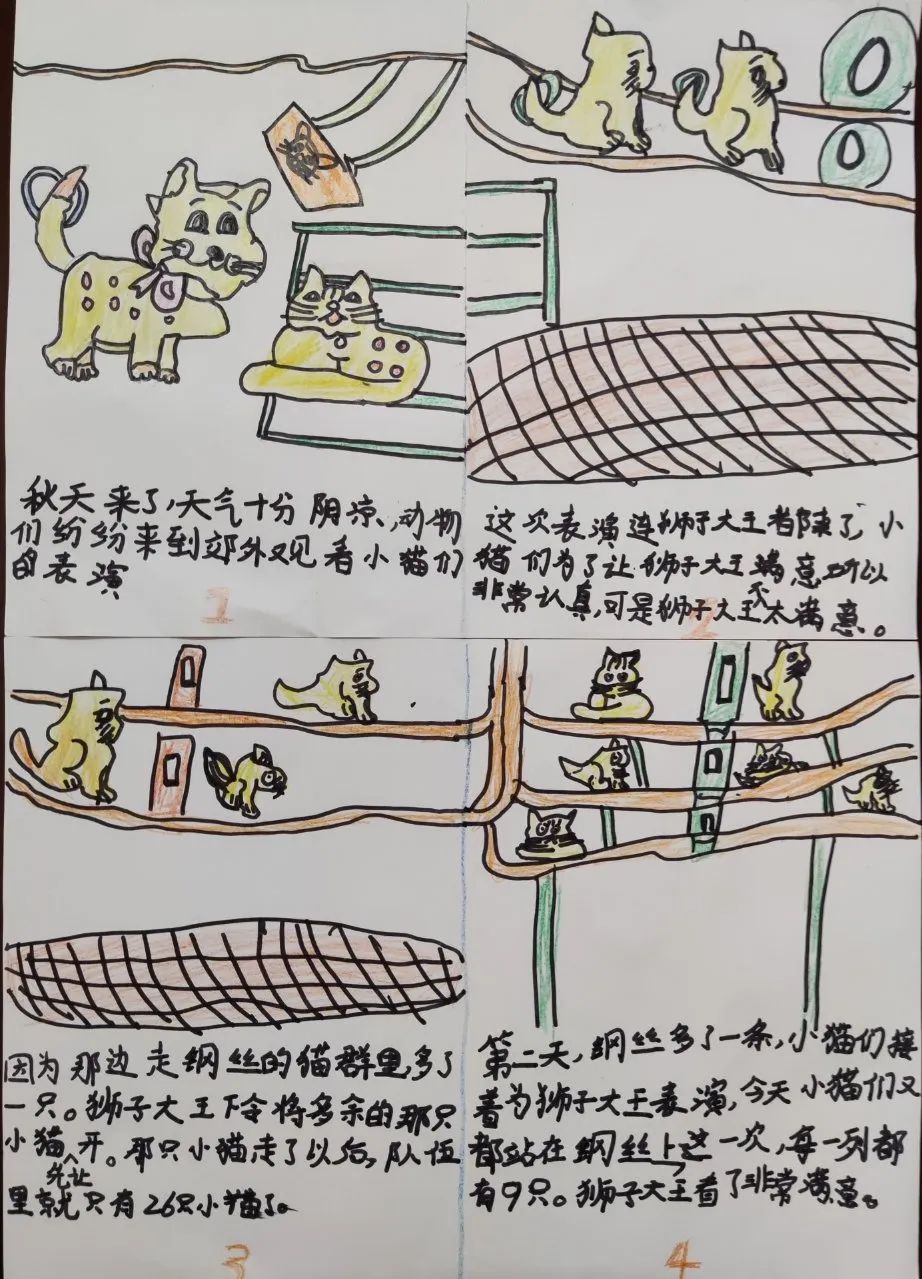 秋天来了,天气十分阴凉,动物
们纷纷来到郊外观看小猫们
的表演
1
这次表演连狮子大王都来了,小
猫们为了让狮子大王满意所以
非常认真,可是狮子大王不太满意。
2
因为那边走钢丝的猫群里多了
一只。狮子大王下令将多余的那只
小猫先让开。那只小猫走了以后,队伍
里就只有26只小猫了。
3
第二天,钢丝多了一条,小猫们接
着为狮子大王表演,今天小猫们又
都站在钢丝上这一次,每一列都
有9只。狮子大王看了非常满意。
4